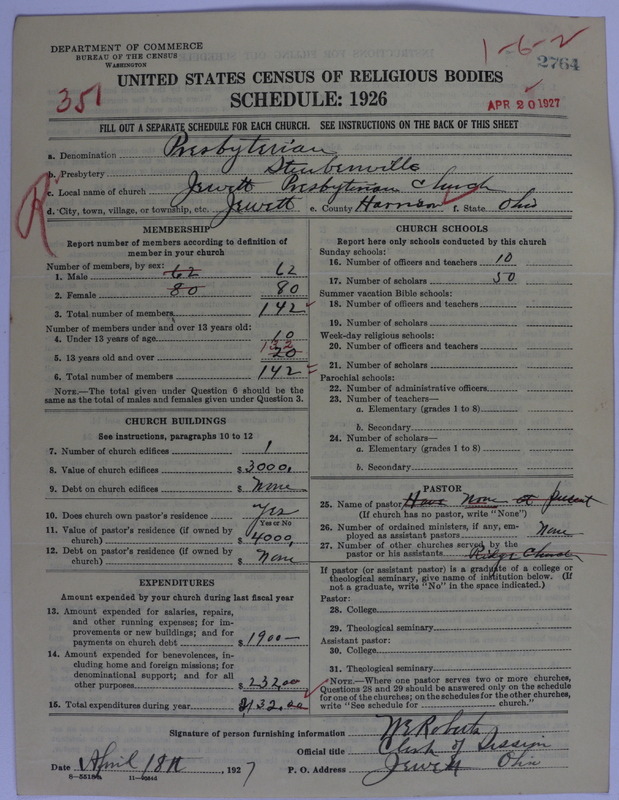 DEPARTMENT OF COMMERCE
BUREAU OF THE CENSUS
WASHINGTON
1-6-2
2764
UNITED STATES CENSUS OF RELIGIOUS BODIES
351
SCHEDULE: 1926
APR 20 1927
FILL OUT A SEPARATE SCHEDULE FOR EACH CHURCH. SEE INSTRUCTIONS ON THE BACK OF THIS SHEET
a. Denomination Presbyterian
b. Presbytery Steubenville
c. Local name of church Jewett Presbyterian Church
d. City, town, village, or township, etc. Jewett e. County Harrison f. State Ohio
R
MEMBERSHIP
Report number of members according to definition of
member in your church
Number of members, by sex:
1. Male 62 62
2. Female 80 80
3. Total number of members 142
Number of members under and over 13 years old:
4. Under 13 years of age 10
5. 13 years old and over 132 20
6. Total number of members 142
NOTE.—The total given under Question 6 should be the
same as the total of males and females given under Question 3.
CHURCH BUILDINGS
See instructions, paragraphs 10 to 12
7. Number of church edifices 1
8. Value of church edifices $ 3000.
9. Debt on church edifices $ None
10. Does church own pastor's residence Yes
Yes or No
11. Value of pastor's residence (if owned by
church) $ 4000.
12. Debt on pastor's residence (if owned by
church) $ None
EXPENDITURES
Amount expended by your church during last fiscal year
13. Amount expended for salaries, repairs,
and other running expenses; for im-
provements or new buildings; and for
payments on church debt $ 1900—
14. Amount expended for benevolences, in-
cluding home and foreign missions; for
denominational support; and for all
other purposes $ 232.00
15. Total expenditures during year $ 2132.00
CHURCH SCHOOLS
Report here only schools conducted by this church
Sunday schools:
16. Number of officers and teachers 10
17. Number of scholars 50
Summer vacation Bible schools:
18. Number of officers and teachers
19. Number of scholars
Week-day religious schools:
20. Number of officers and teachers
21. Number of scholars
Parochial schools:
22. Number of administrative officers
23. Number of teachers—
a. Elementary (grades 1 to 8)
b. Secondary
24. Number of scholars—
a. Elementary (grades 1 to 8)
b. Secondary
PASTOR
25. Name of pastor Have None at present
(If church has no pastor, write "None")
26. Number of ordained ministers, if any, em-
ployed as assistant pastors None
27. Number of other churches served by the
pastor or his assistants
If pastor (or assistant pastor) is a graduate of a college or
theological seminary, give name of institution below. (If
not a graduate, write "No" in the space indicated.)
Pastor:
28. College
29. Theological seminary
Assistant pastor:
30. College
31. Theological seminary
NOTE.—Where one pastor serves two or more churches,
Questions 28 and 29 should be answered only on the schedule
for one of the churches; on the schedules for the other churches,
write "See schedule for church."
Signature of person furnishing information W E Roberts
Official title Clerk of Session
Date April 18th 1927 P. O. Address Jewett Ohio